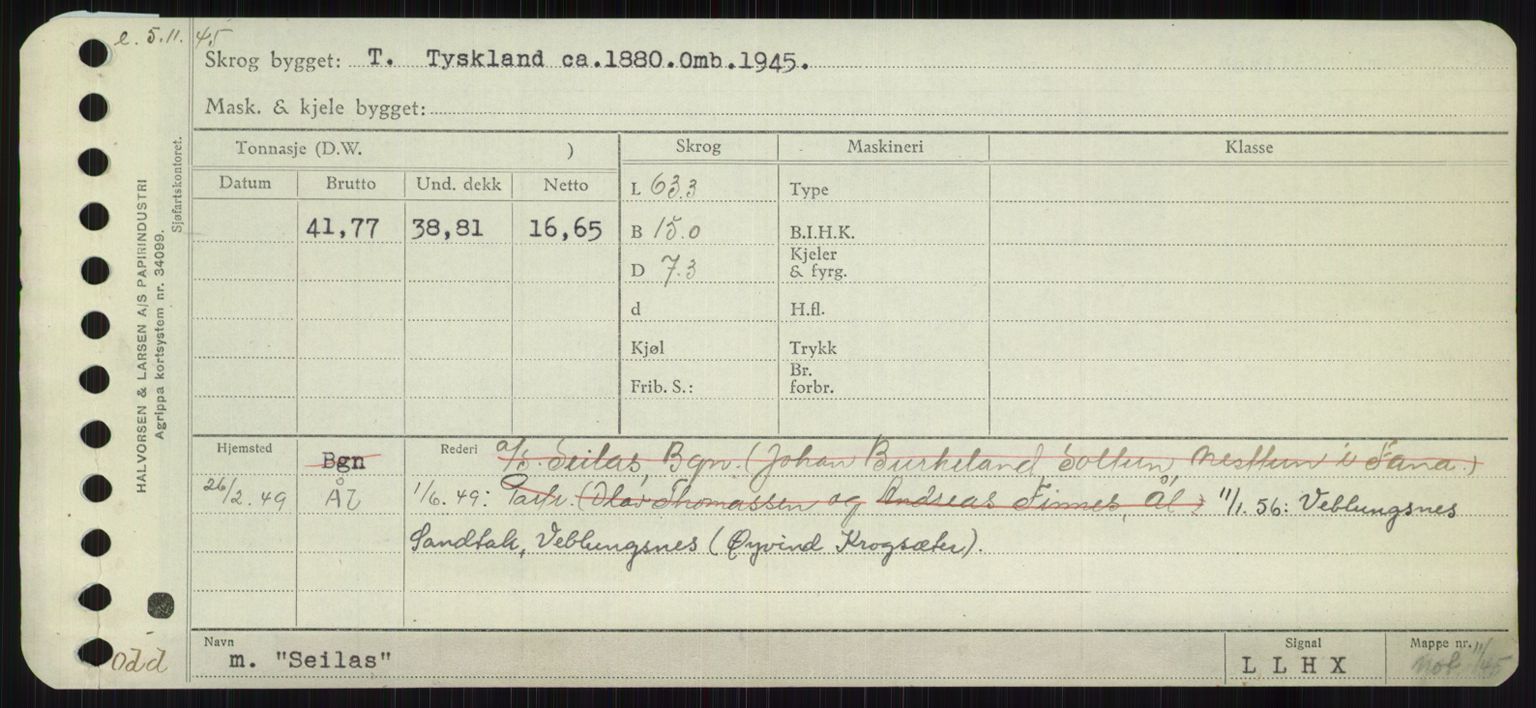 e. 5.11. 45
Skrog bygget: T. Tyskland ca.1880.Omb.1945.
Mask. & kjele bygget:
Tonnasje (D.W. ) Skrog Maskineri Klasse
Datum Brutto Und. dekk Netto
L 63.3 Type
41,77 38,81 16,65 B 15.0 B.I.H.K.
D 7.3 Kjeler & fyrg.
d H.fl.
Kjøl Trykk
Frib. S.: Br. forbr.
Hjemsted Bgn Rederi a/s. Seilas, Bgn. (Johan Burkeland Soltun Nesttun i Fana.)
26/2. 49 Ål 1/6. 49: Partr. (Olav Thomassen og Andreas Finnes, Ål) 11/1. 56: Veblungsnes
Sandtak, Veblungsnes (Øyvind Krogsæter).
Navn Signal Mappe nr.
m. "Seilas" L L H X not. 11/45
Odd
HALVORSEN & LARSEN A/S PAPIRINDUSTRI
Agrippa kortsystem nr. 34099.
Sjøfartskontoret.